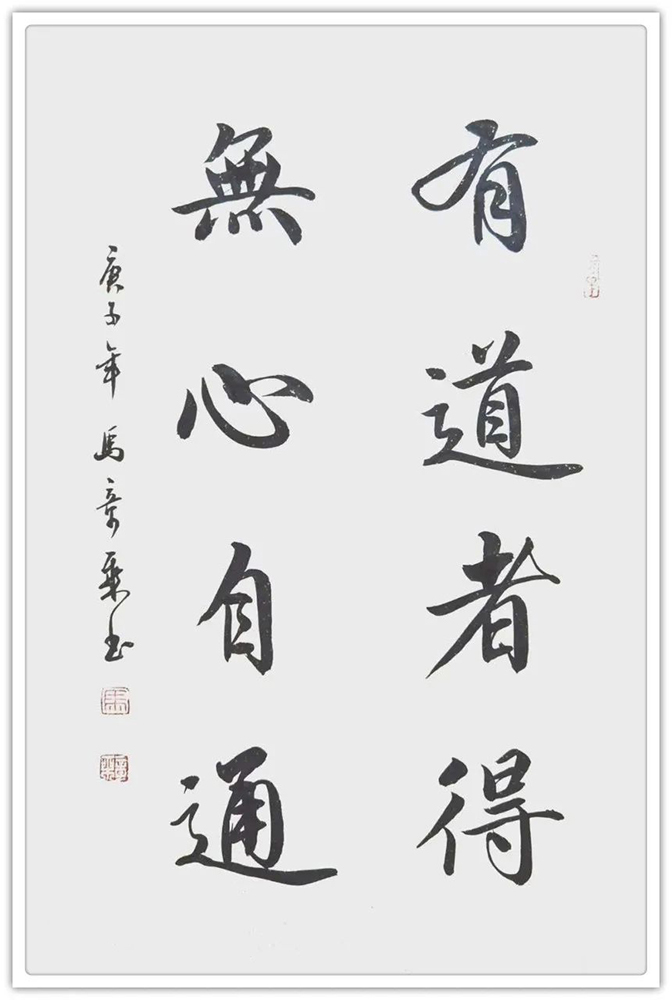 有道者得
無心自通
庚子年馬章乘書